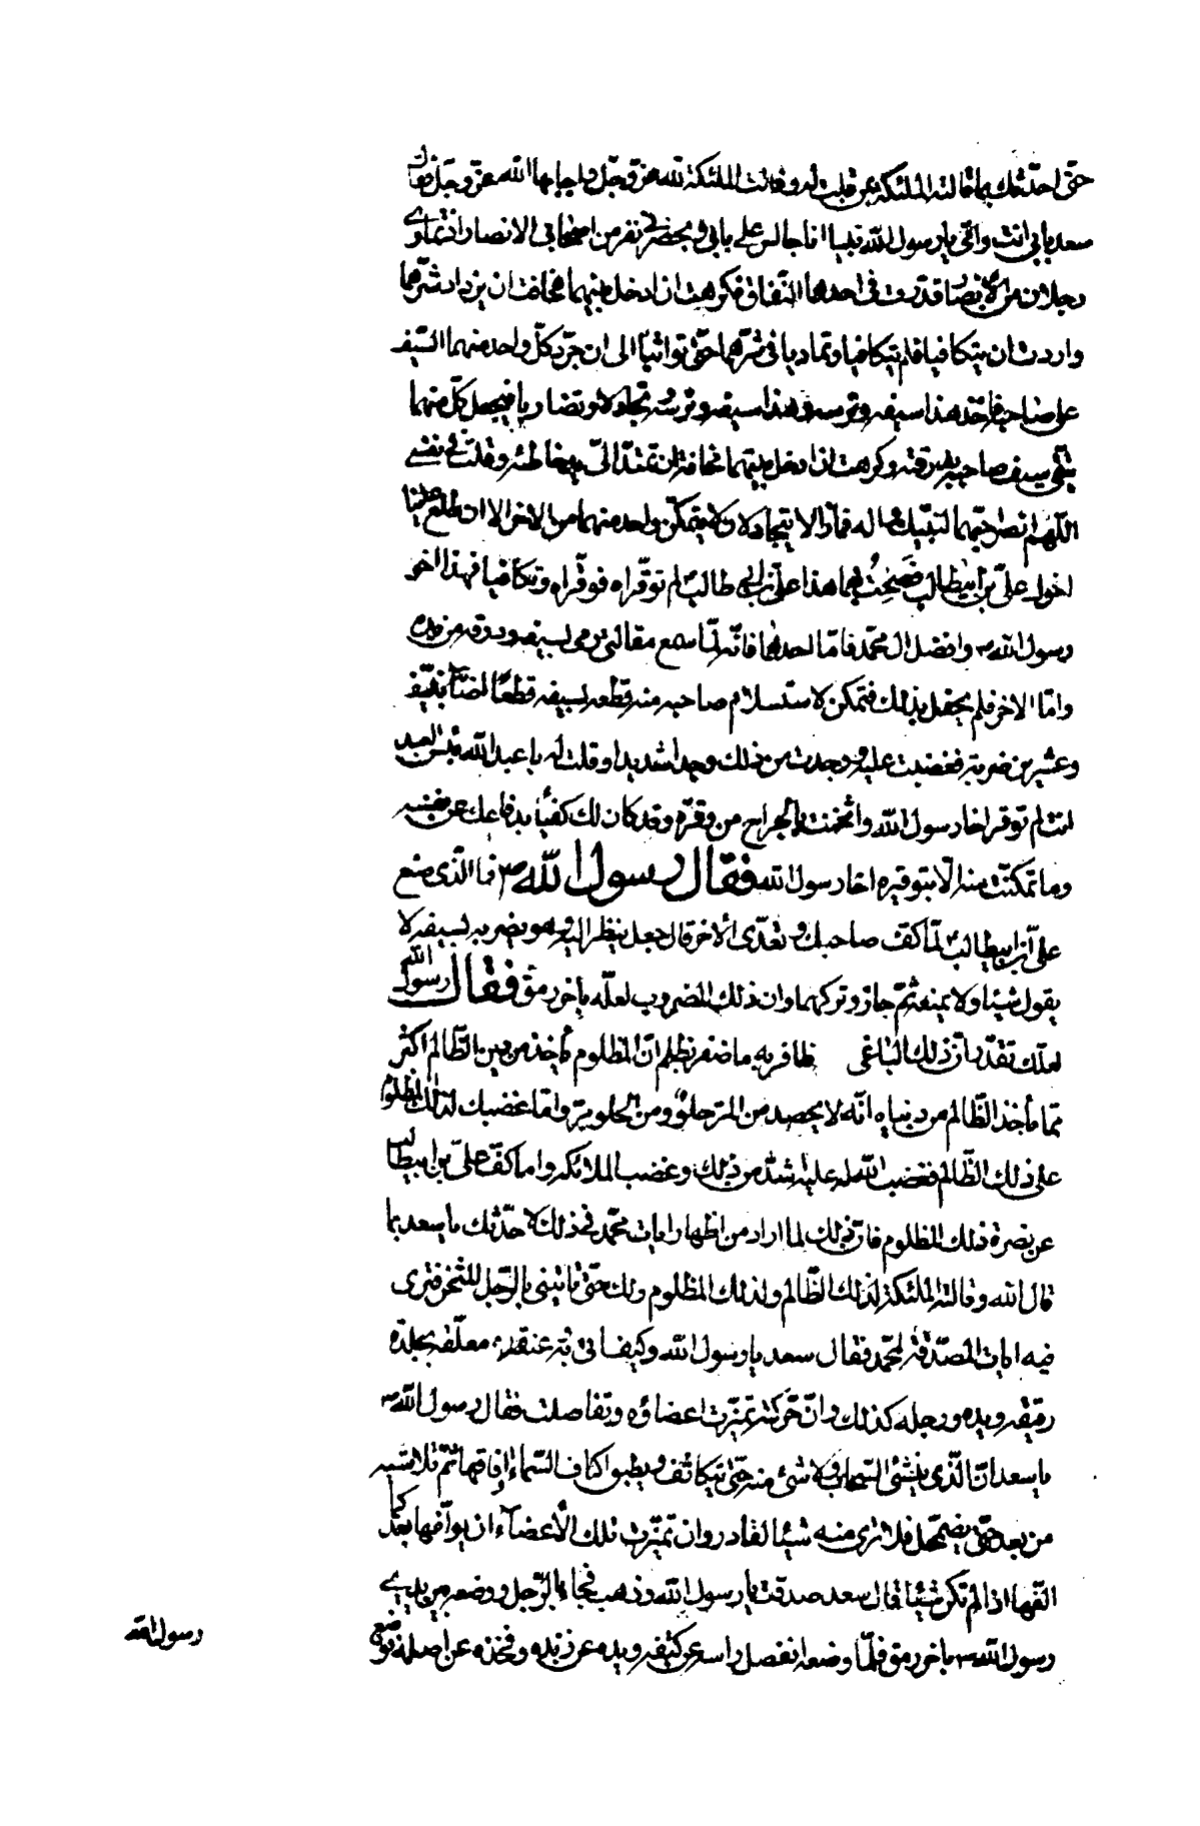 حتى احدثك بما قالته الملئكة عن قلبت له وقالت الملئكة لله عز وجل واجابها الله عز وجل فقال
سعد بابي انت وامي يا رسول الله بينا انا جالس على بابي وبحضرتي نفر من اصحابي الانصار اذ تمادى
رجلان من الانصار قد دبت في احدهما النفاق فكرهت ان ادخل بينهما مخافة ان يزداد شرهما
واردت ان يتكافيا فلم يتكافيا وتماديا في شرهما حتى تواثبا الى ان جرد كل واحد منهما السيف
على صاحبه فاخذ هذا سيفه وترسه وهذا سيفه وترسه تجاولا وتضاربا فجعل كل منهما
يتقى سيف صاحبه بدرقته وكرهت ان ادخل بينهما مخافة ان تمتد الى يد خاطئه وقلت في نفسي
اللهم انصر احبهما لنبيك واله فما زالا يتجاولان لا يتمكن واحد منهما من الاخر الا ان طلع علينا
اخوك على بن ابيطالب فصحت بهما هذا على بن ابي طالب لم توقراه فوقراه وتكافيا فهذا اخو
رسول الله ص وافضل ال محمد فاما احدهما فانه لما سمع مقالتي رمى بسيفه ودرقته من يده
واما الاخر فلم يحفل بذلك فتمكن لاستسلام صاحبه منه فقطعه بسيفه قطعا اصابه بنيف
وعشرين ضربة فغضبت عليه ووجدت من ذلك وجدا شديدا وقلت له يا عبد الله بئس العبد
انت لم توقر اخا رسول الله واثخنت بالجراح من وقره وقد كان لك كفيا بدفاعك عن نفسه
وما تمكنت منه الا بتوقيره اخا رسول الله فقال رسول الله ص فما الذى صنع
على بن ابيطالب لما كف صاحبك وتعدى الاخر قال جعل ينظر اليه وهو يضربه بسيفه لا
يقول شيئا ولا يمنعه ثم جاز وتركهما وان ذلك المضروب لعله باخر رمق فقال رسول الله
لعلك تقدر ان ذلك الباغى ظافر به ما ظفر بظلم ان المظلوم ياخذ من دين الظالم اكثر
مما ياخذ الظالم من دنياه انه لا يحصد من المر حلو ومن الحلو مر واما غضبك لذلك المظلوم
على ذلك الظالم فغضب الله له عليه اشد من ذلك وغضب الملائكه واما كف على بن ابيطالب
عن نصرة ذلك المظلوم فان ذلك لما اراد من اظهار ايات محمد في ذلك لا حدثك يا سعد بما
قال الله وقالته الملئكة لذلك الظالم ولذلك المظلوم ولك حتى تاتينى بالرجل المثخن فترى
فيه ايات المصدقة لمحمد فقال سعد يا رسول الله وكيف اتى به عنقه معلقه بجلدة
رقيقه ويده ورجله كذلك وان حركته تميزت اعضاؤه وتفاصلت فقال رسول الله ص
يا سعد ان الذى ينشئ السحاب ولا شئ منه حتى يتكاثف ويطبق اكناف السماء وافاقها ثم يلاشيه
من بعد حتى يضمحل فلا ترى منه شيئا لقادر وان تميزت تلك الاعضاء ان يؤلفها بعد كما
الفها اذا لم تكن شيئا قال سعد صدقت يا رسول الله وذهب فجاء بالرجل ووضعه بين يدي
رسول الله ص باخر رمق فلما وضعه انفصل راسه عن كتفه ويده عن زنده وفخذه عن اصله فوضع
رسول الله